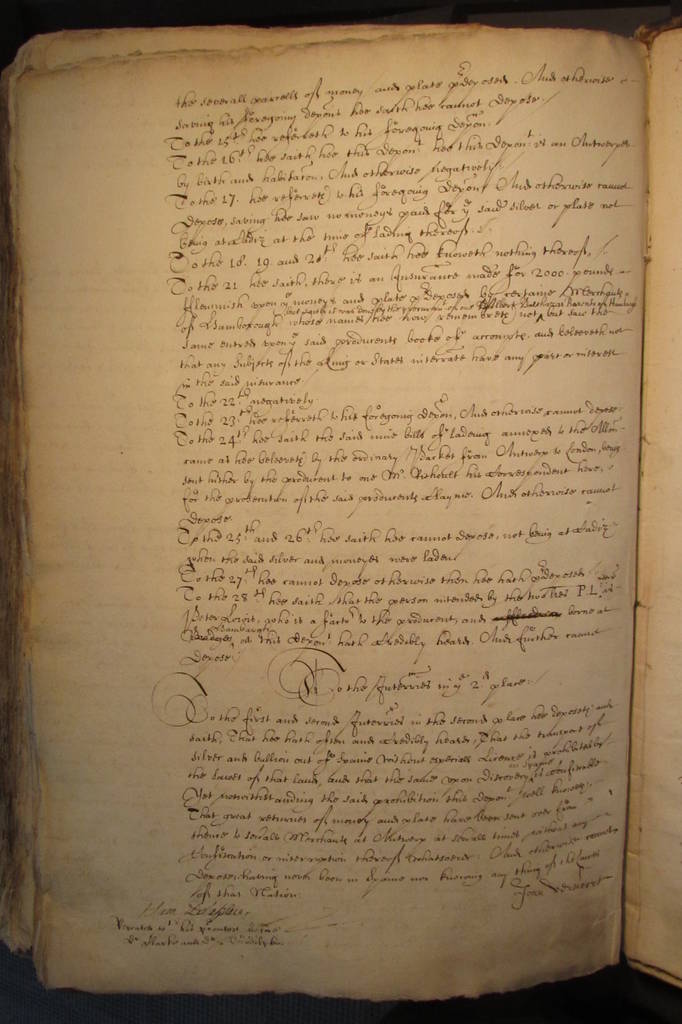 the severall parcells of money and plate p:deposed. And otherwise
saving his foregoing depon:t hee saith hee cannot depose./
To the 15:th hee referreth to his foregoing depon.
To the 16:th hee saith hee this Depon:t hee this Depon:t is an Antwerper
by birth and habitacon, And otherwise negatively./
To the 17. hee referreth to his foregoing depon, And otherwise cannot
depose, saving hee saw no moneys paid for y:e said silver or plate not
being at Cadiz at the time of lading thereof./
To the 18. 19. and 20:th hee saith hee knoweth nothing thereof,/
To the 21 hee saith, there is an Insurance made for 2000. pounds
fflemmish upon y:e moneys and plate p:deposed by certaine Merchants
of Hamborough, whose names hee now remembreth not, but saw the
same entred upon y:e said producents books of accompts, and beleeveth not
that any subjects of the King or States interrate have any part or interest
in the said insurance.
To the 22:th negatively
To the 23:th hee referreth to his foregoing depon, And otherwise cannot depose.
To the 24:th hee saith the said nine bills of lading annexed to the All:on
came as hee beleeveth by the ordinary Packet from Antwerp to London, being
sent hither by the producent to one M:r his Correspondent here,
for the prosecution of the said producents clayme. And otherwise cannot
depose.
To the 25:th and 26:th hee saith hee cannot depose, not being at Cadiz
when the said silver and moneyes were laden.
To the 27:th hee cannot depose otherwise then hee hath p:deposed
To the 28:th hee saith, that the person intended by the two P. L. is
Peter who is a factor to the producent, and borne at
Bruges, as this Depon:t hath credibly heard. And further cannot
depose.
To the Interries in y:e 2:d place./
To the first and second Interries in the second place hee deposeth and
saith, That hee hath often and credibly heard, That the transport of
silver and bullion out of Spaine without especiall License is prohibited by
the lawes of that land, and that the same upon discovery in Spaine is confiscable
Yet notwithstanding the said prohibition this Depon:t well knoweth
That great returnes of money and plate have been sent over from
thence to severall Merchants at Antwerp at severall times without any
Confiscation or interruption thereof whatsoever. And otherwise cannot
depose, having never been in Spaine nor knowing any thing of the lawes
of that Nation.